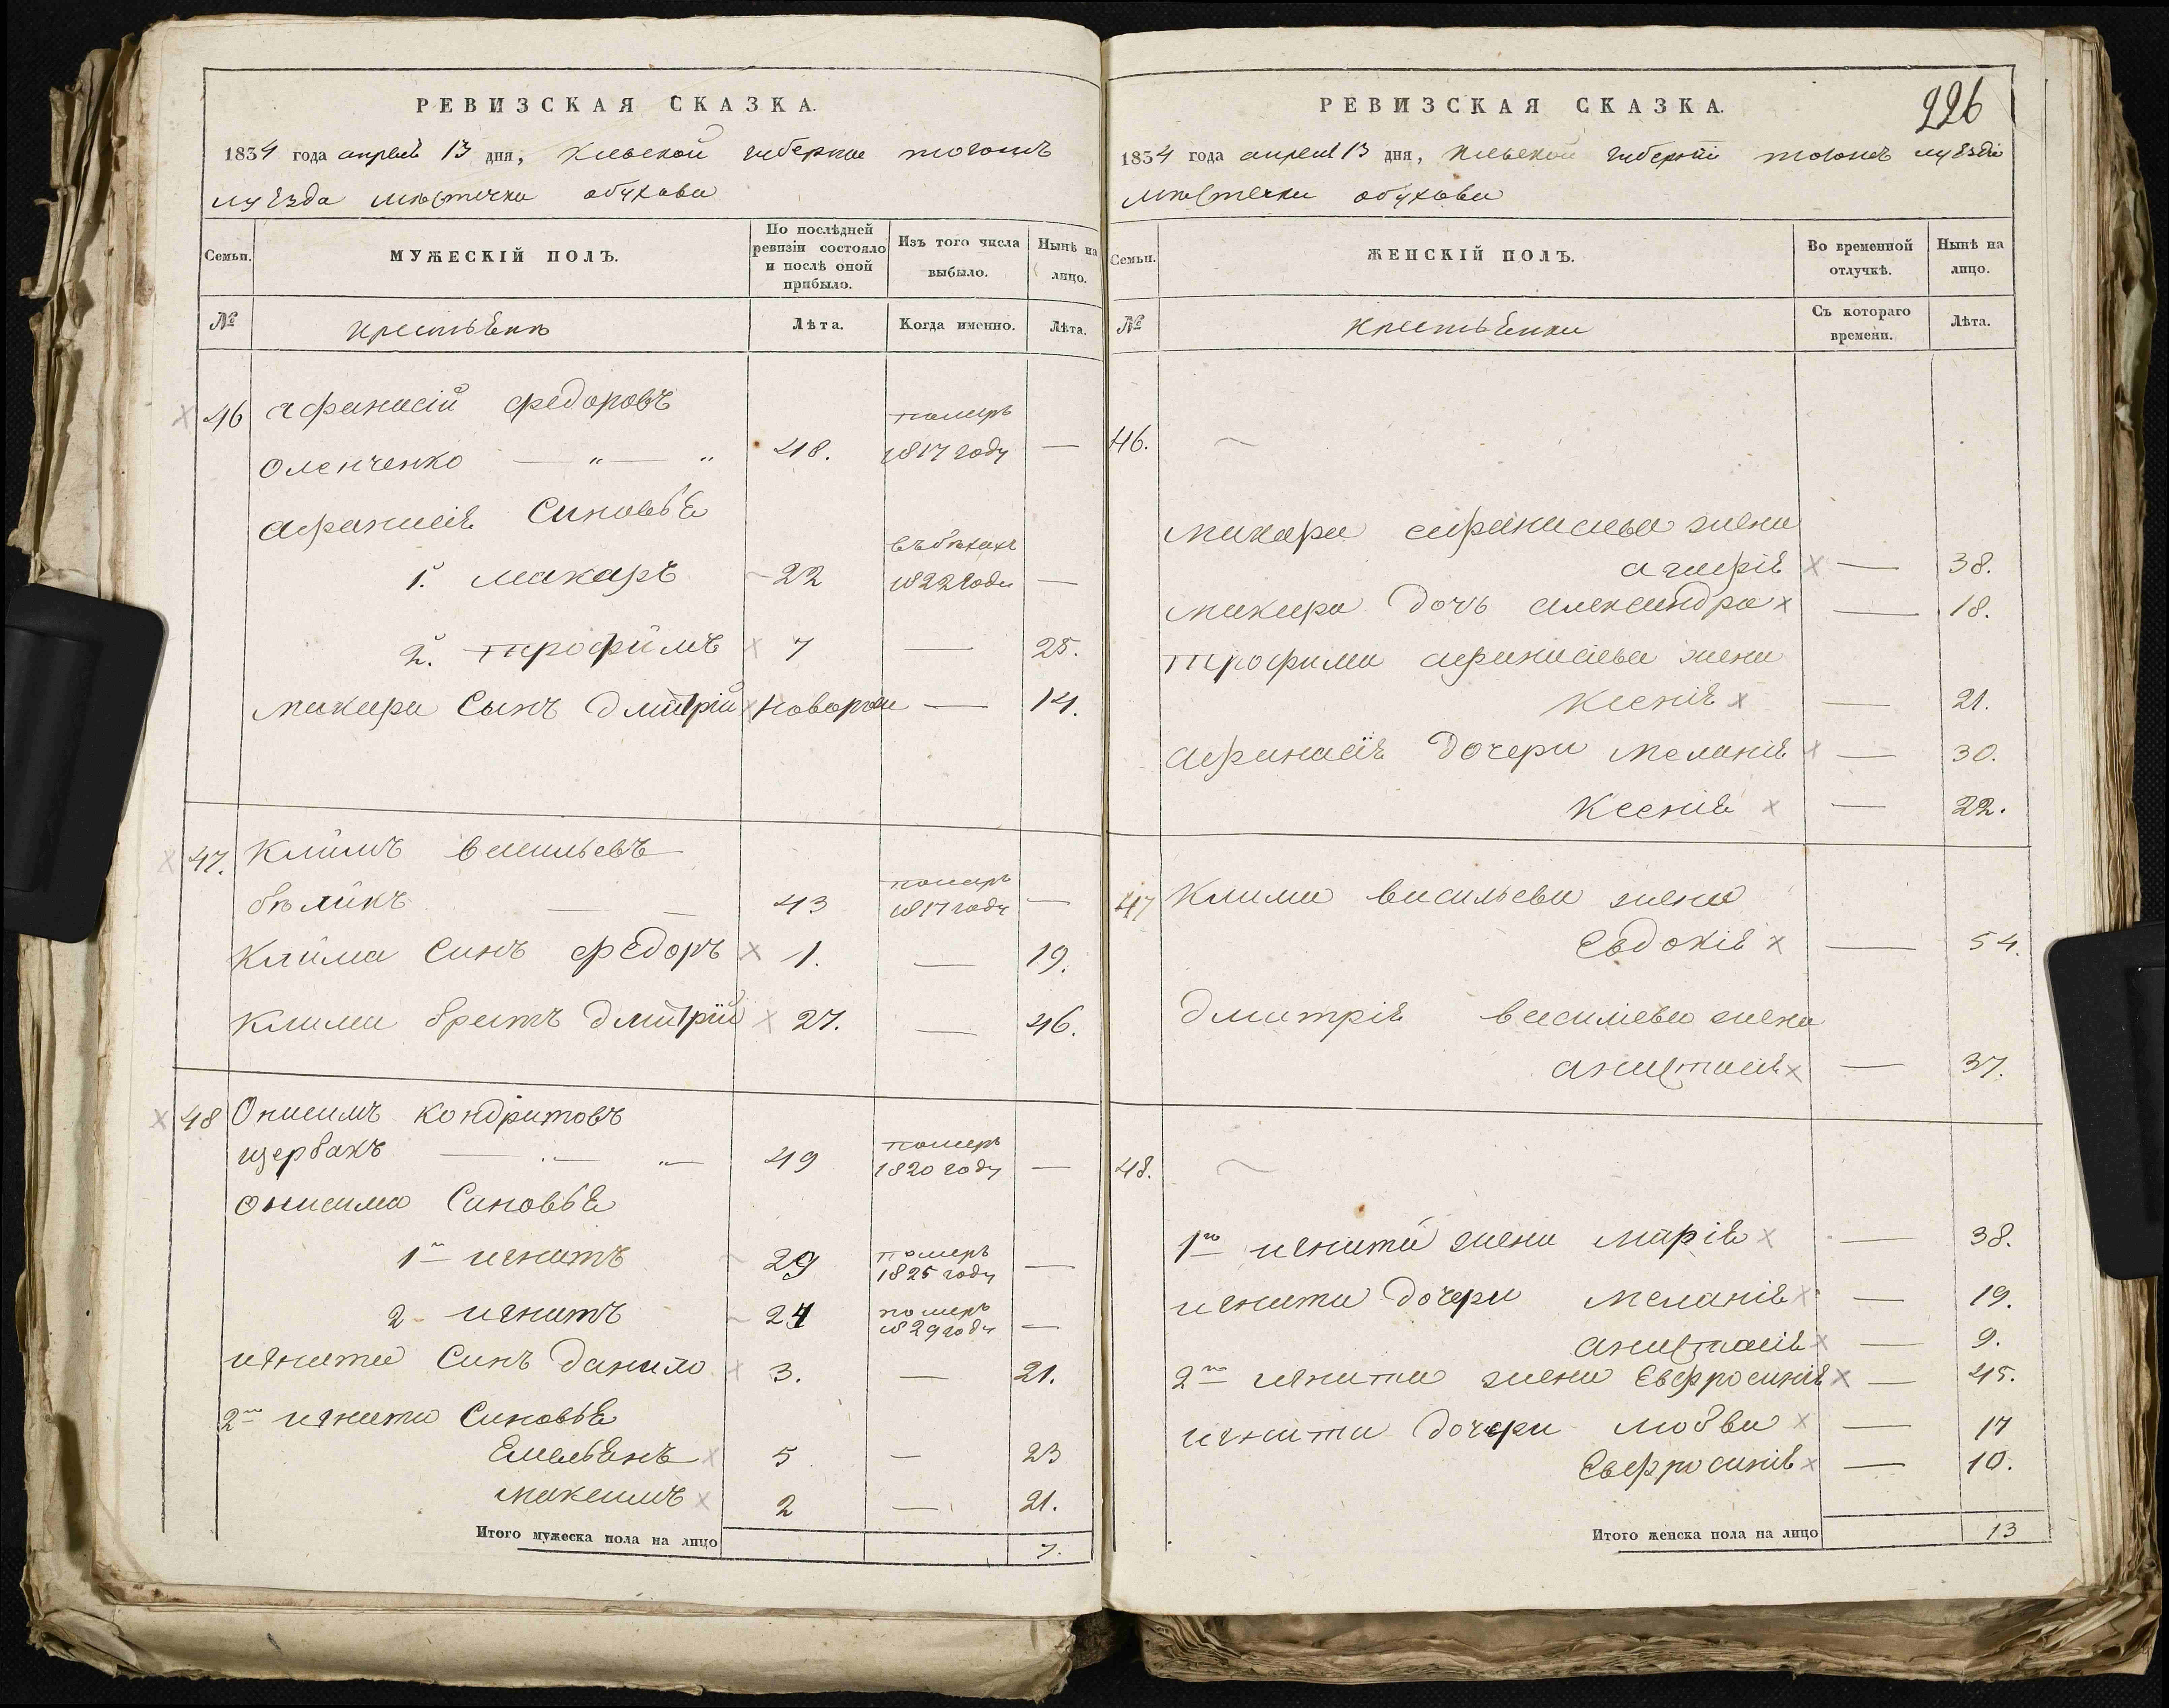 РЕВИЗСКАЯ СКАЗКА.
1834 года апреля 13 дня, киевской губернии тогожъ
уѣзда мѣстечка обухова
Семьи. МУЖЕСКІЙ ПОЛЪ. По послѣдней ревизіи состояло и послѣ оной прибыло. Изъ того числа выбыло. Нынѣ на лицо.
№ крестьѣнѣ Лѣта. Когда именно. Лѣта.
46 афанасій федоровъ
оленченко — „ — „ 48. померъ 1817 году —
афанасіѣ Синовьѣ
1й. макаръ 22 въбѣгахъ 1822 годи —
2й. трофимъ 7 — 25.
макара Сынъ дмитрій новорож — 14.
47. климъ васильевъ
бѣликъ — — 43 померъ 1817 году —
клима Синъ федоръ 1. — 19.
клима братъ дмитрій 27. — 46.
48 Онисимъ кондратовъ
щербакъ — 49 померъ 1820 году —
онисима Синовьѣ
1й игнатъ 29 померъ 1825 году —
2 игнатъ 24 померъ 1829 году —
игната Синъ данило 3. — 21.
2го игната Синовьѣ
Емельѣнъ 5 — 23
максимъ 2 — 21.
Итого мужеска пола на лицо 7.
226
РЕВИЗСКАЯ СКАЗКА.
1834 года апреля 13 дня, киевской губерніи тогожъ уѣзда
мѣстечка обухова
Семьи. ЖЕНСКІЙ ПОЛЪ. Во временной отлучкѣ. Нынѣ на лицо.
№ крестьѣнки Съ котораго времени. Лѣта.
46. ~
макара афанасіева жена
агафіѣ — 38.
макара дочь александра — 18.
трофима афанасіева жена
ксеніѣ — 21.
афанасіѣ дочери меланіѣ — 30.
ксеніѣ — 22.
47 клима васильева жена
Евдокіѣ — 54.
дмитріѣ василіева жена
анастасіѣ — 37.
48. ~
1го игната жена маріѣ — 38.
игната дочери меланіѣ — 19.
анастасіѣ — 9.
2го игната жена Евфросиніѣ — 45.
игната дочери любви — 17
Евфросиніѣ — 10.
Итого женска пола на лицо 13